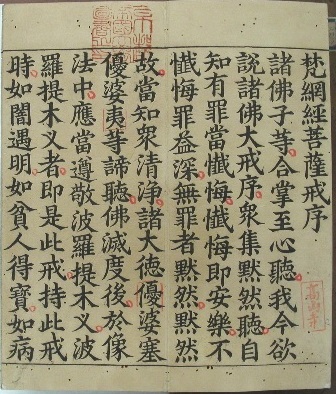 梵網經菩薩戒序
諸佛子等合掌至心聽我今欲
說諸佛大戒序衆集黙然聽自
知有罪當懺悔懺悔即安樂不
懺悔罪益深無罪者黙然黙然
故當知衆清淨諸大德優婆塞
優婆夷等諦聽佛滅度後於像
法中應當遵敬波羅提木叉波
羅提木叉者即是此戒持此戒
時如闇遇明如貧人得寶如病
高山寺